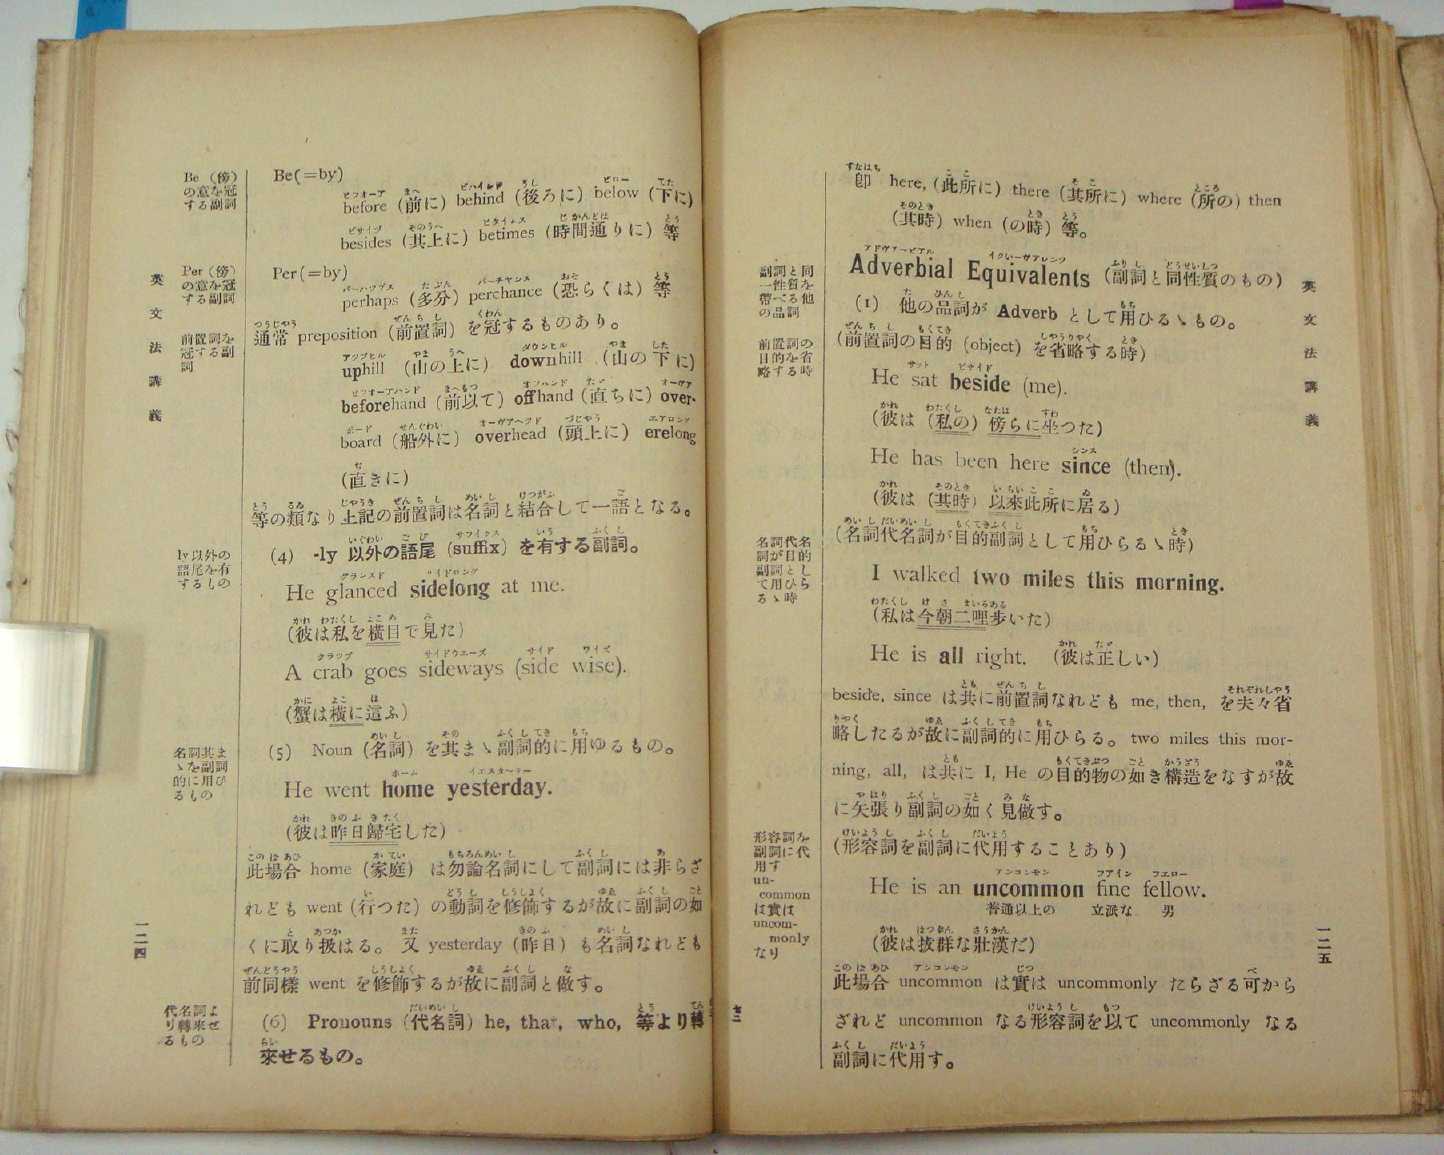 英文法講義
一二四
Be (傍)
の意を冠
する副詞
Be(=by)
before (前に) behind (後ろに) below (下に)
besides (其上に) betimes (時間通りに) 等
Per (傍)
の意を冠
する副詞
Per(=by)
perhaps (多分) perchance (恐らくは) 等
前置詞を
冠する副
詞
通常 preposition (前置詞) を冠するものあり。
uphill (山の上に) downhill (山の下に)
beforehand (前以て) offhand (直ちに) over-
board (船外に) overhead (頭上に) erelong
(直きに)
等の類なり上記の前置詞は名詞と結合して一語となる。
ly以外の
語尾を有
するもの
(4) -ly 以外の語尾 (suffix) を有する副詞。
He glanced sidelong at me.
(彼は私を横目で見た)
A crab goes sideways (side wise).
(蟹は横に這ふ)
名詞其ま
ゝを副詞
的に用ひ
るもの
(5) Noun (名詞) を其まゝ副詞的に用ゆるもの。
He went home yesterday.
(彼は昨日歸宅した)
此場合 home (家庭) は勿論名詞にして副詞には非らざ
れども went (行つた) の動詞を修飾するが故に副詞の如
くに取り扱はる。又 yesterday (昨日) も名詞なれども
前同樣 went を修飾するが故に副詞と做す。
代名詞よ
り轉來せ
るもの
(6) Pronouns (代名詞) he, that, who, 等より轉
來せるもの。
英文法講義
一二五
卽 here, (此所に) there (其所に) where (所の) then
(其時) when (の時) 等。
副詞と同
一性質を
帶べる他
の品詞
Adverbial Equivalents (副詞と同性質のもの)
(1) 他の品詞が Adverb として用ひるゝもの。
前置詞の
目的を省
略する時
(前置詞の目的 (object) を省略する時)
He sat beside (me).
(彼は (私の) 傍らに坐つた)
He has been here since (then).
(彼は (其時) 以來此所に居る)
名詞代名
詞が目的
副詞とし
て用ひら
るゝ時
(名詞代名詞が目的副詞として用ひらるゝ時)
I walked two miles this morning.
(私は今朝二哩歩いた)
He is all right. (彼は正しい)
beside, since は共に前置詞なれども me, then, を夫々省
略したるが故に副詞的に用ひらる。two miles this mor-
ning, all, は共に I, He の目的物の如き構造をなすが故
に矢張り副詞の如く見做す。
形容詞を
副詞に代
用す
un-
common
は實は
uncom-
monly
なり
(形容詞を副詞に代用することあり)
He is an uncommon fine fellow.
普通以上の 立派な 男
(彼は拔群な壯漢だ)
此場合 uncommon は實は uncommonly たらざる可から
ざれど uncommon なる形容詞を以て uncommonly なる
副詞に代用す。